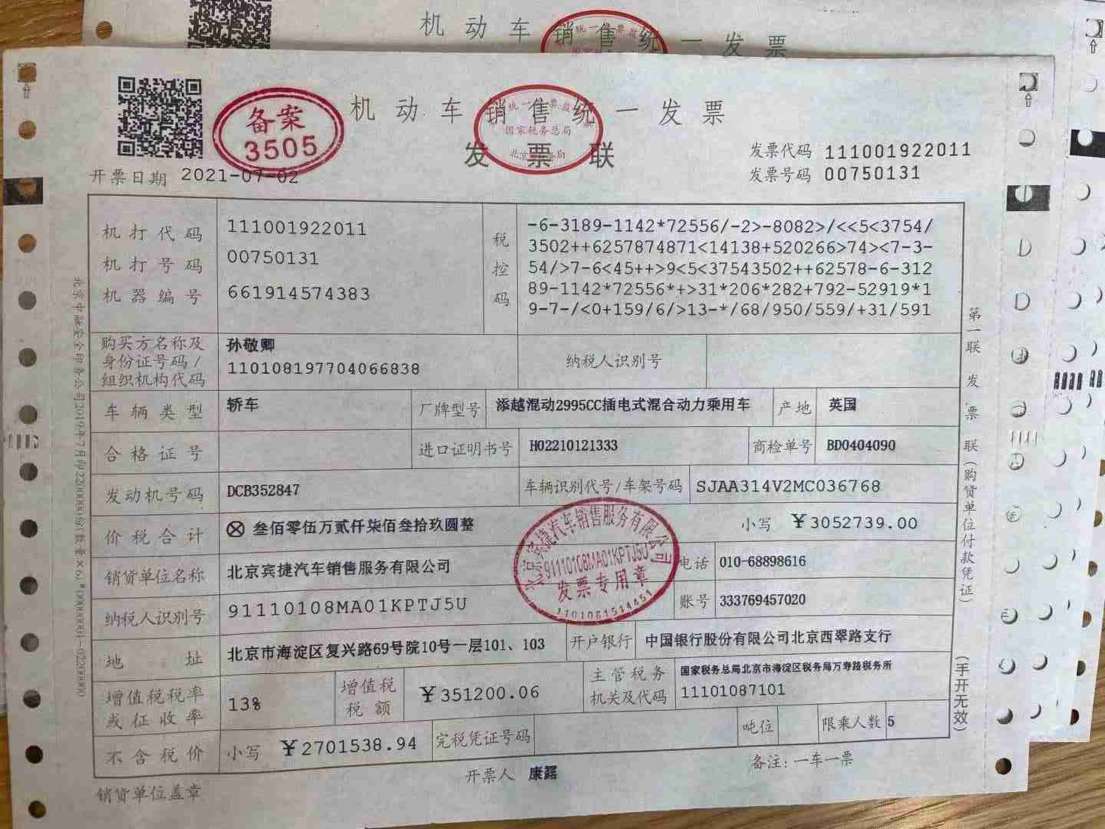 机动车销售统一发票
备案
3505
机动车销售统一发票
发票联
国家税务总局
开票日期 2021-07-02
发票代码 111001922011
发票号码 00750131
机打代码 111001922011
机打号码 00750131
机器编号 661914574383
税控码
-6-3189-1142*72556/-2>-8082>/<<5<3754/
3502++6257874871<14138+520266>74><7-3-
54/>7-6<45++>9<5<37543502++62578-6-312
89-1142*72556*+>31*206*282+792-52919*1
9-7-/<0+159/6/>13-*/68/950/559/+31/591
购买方名称及
身份证号码/
组织机构代码
孙敬卿
110108197704066838
纳税人识别号
车辆类型 轿车 厂牌型号 添越混动2995CC插电式混合动力乘用车 产地 英国
合格证号 进口证明书号 H02210121333 商检单号 BD0404090
发动机号码 DCB352847 车辆识别代号/车架号码 SJAA314V2MC036768
价税合计 ⊗ 叁佰零伍万贰仟柒佰叁拾玖圆整 小写 ￥3052739.00
销货单位名称 北京宾捷汽车销售服务有限公司 电话 010-68898616
纳税人识别号 91110108MA01KPTJ5U 账号 333769457020
地址 北京市海淀区复兴路69号院10号一层101、103 开户银行 中国银行股份有限公司北京西翠路支行
增值税税率
或征收率
13%
增值税
税额
￥351200.06
主管税务
机关及代码
国家税务总局北京市海淀区税务局万寿路税务所
11101087101
不含税价 小写 ￥2701538.94 完税凭证号码 吨位 限乘人数 5
销货单位盖章 开票人 康磊 备注:一车一票
北京宾捷汽车销售服务有限公司
91110108MA01KPTJ5U
发票专用章
第一联 发票联(购货单位付款凭证)
(手开无效)